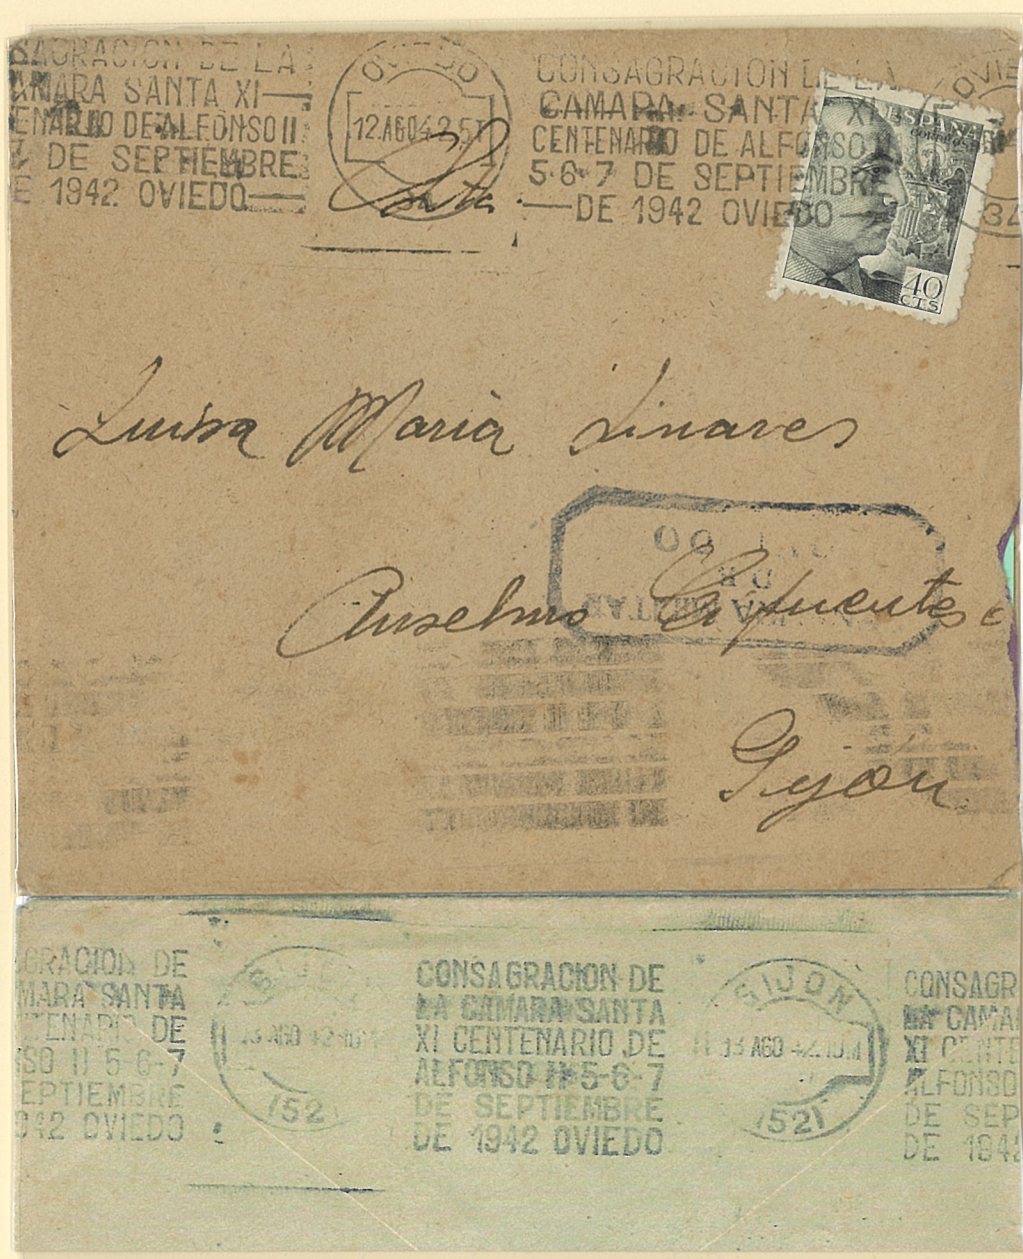 SAGRACION DE LA
AMARA SANTA XI
ENARIO DE ALFONSO II
7 DE SEPTIEMBRE
E 1942 OVIEDO
OVIEDO
12.AGO42.5T
CONSAGRACION DE LA
CAMARA SANTA XI
CENTENARIO DE ALFONSO II
5-6-7 DE SEPTIEMBRE
DE 1942 OVIEDO
OVIE
ESPAÑA
correos
40
CTS
Luisa Maria Linares
MILITAR
DE
Anselmo Cifuentes
Gijón
GRACION DE
MARA SANTA
TENARIO DE
NSO II 5-6-7
EPTIEMBRE
942 OVIEDO
13 AGO 42.10M
(52)
CONSAGRACION DE
LA CAMARA SANTA
XI CENTENARIO DE
ALFONSO II 5-6-7
DE SEPTIEMBRE
DE 1942 OVIEDO
GIJON
13 AGO 42.10M
(52)
CONSAGR
LA CAMA
XI CENTE
ALFONSO
DE SEP
DE 1942